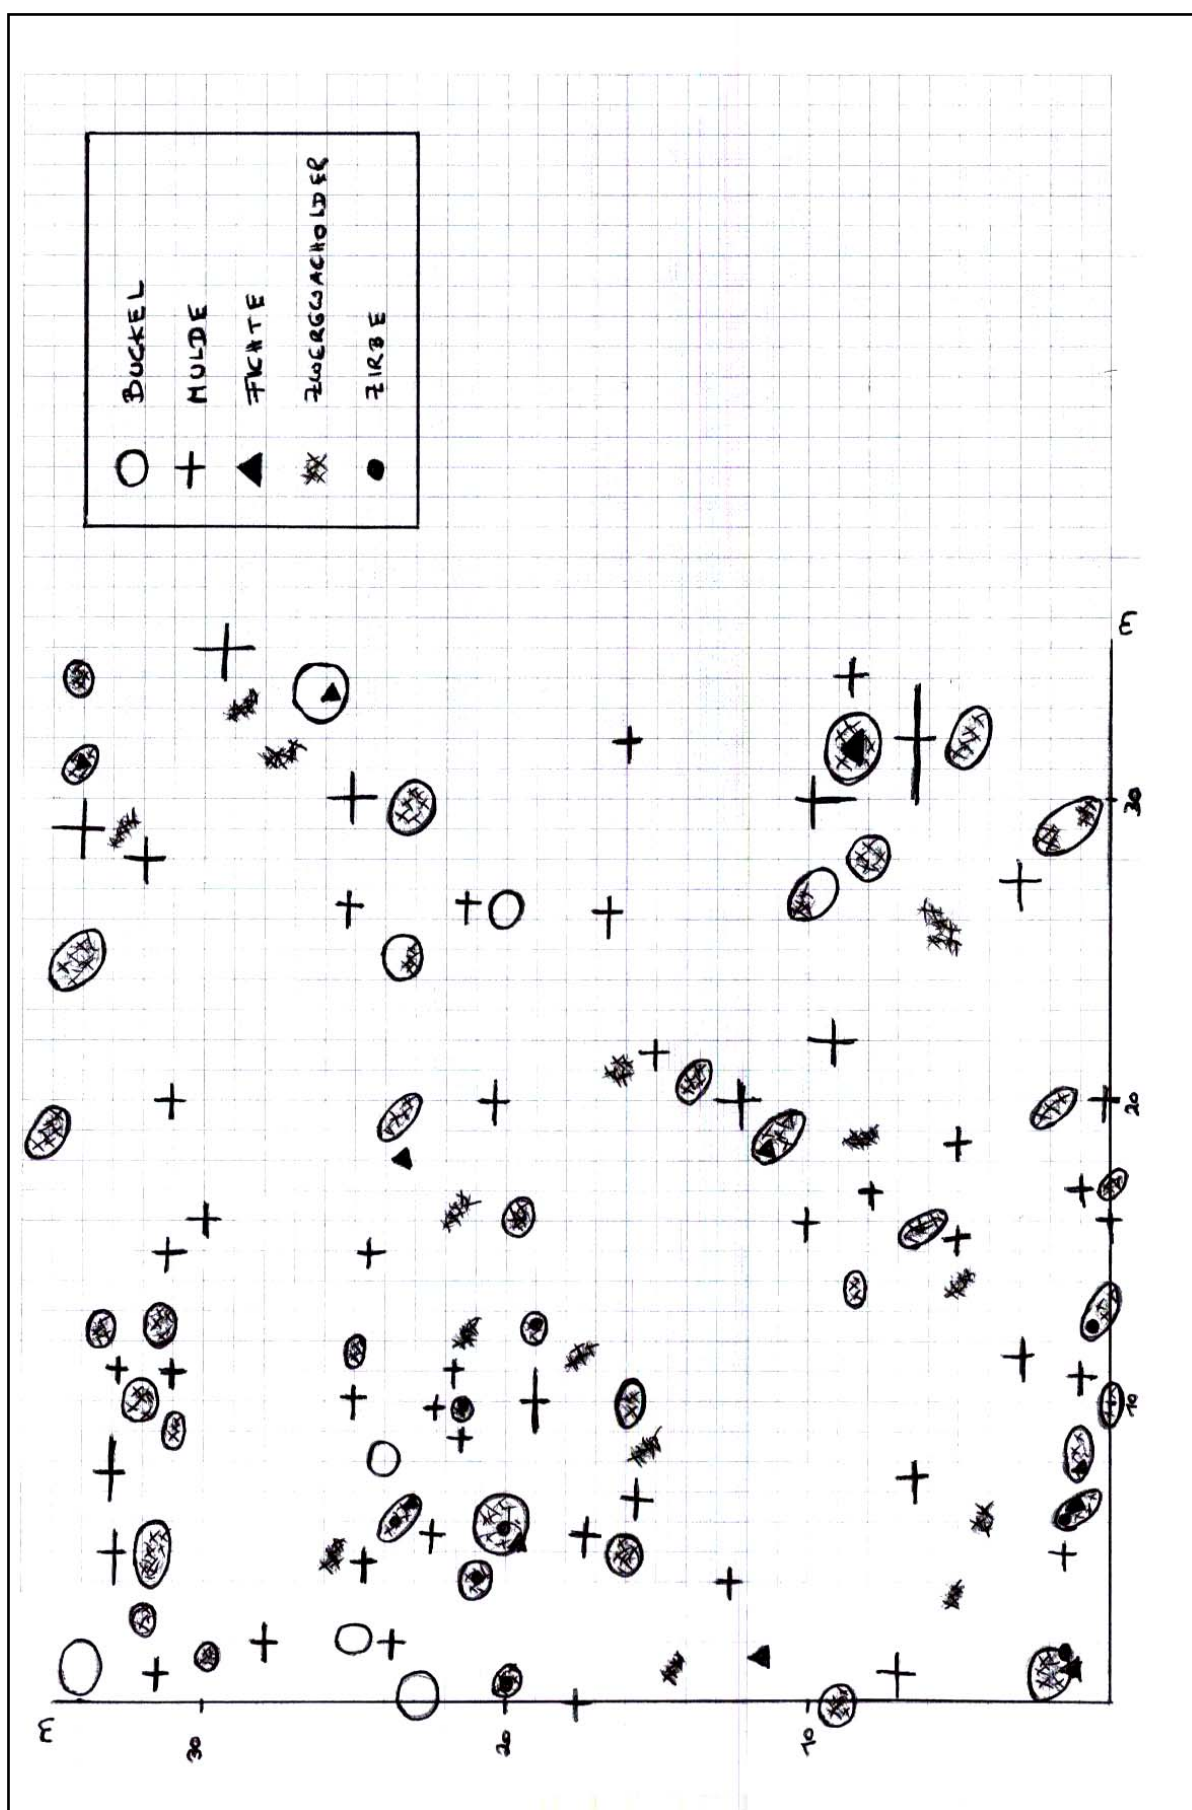 BUCKEL
MULDE
FICHTE
ZWERGWACHOLDER
ZIRBE
m
30
20
10
m
30
20
10